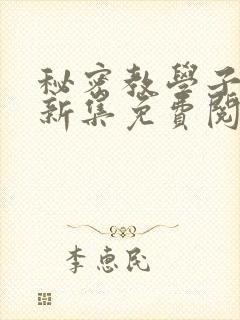 秘密教學子
新集免費閱
李惠民